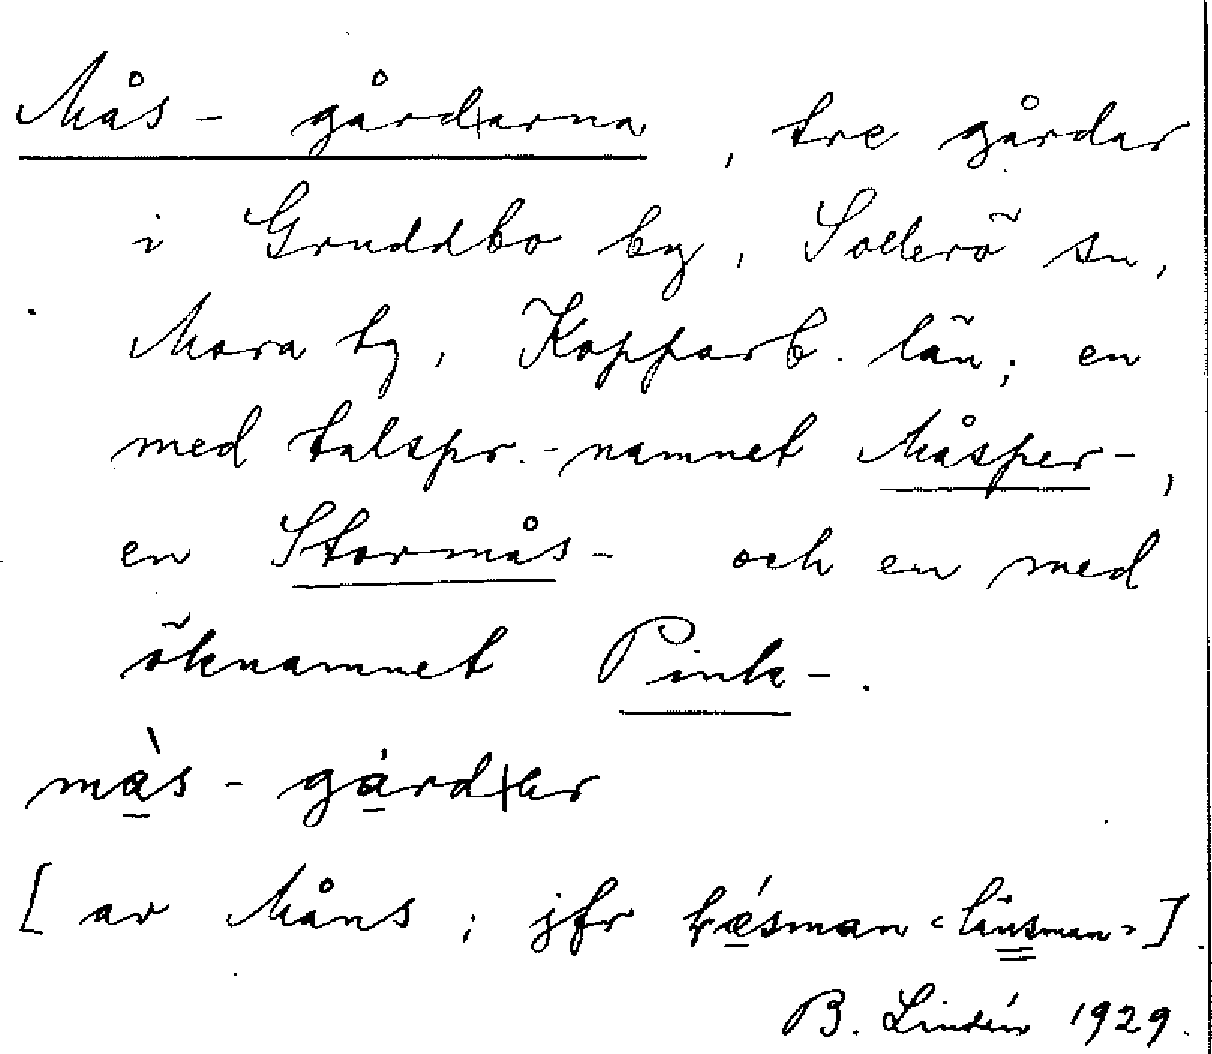 Mås-gårdarna, tre gårdar
i Gruddbo by, Sollerö sn,
Mora tg, Kopparb. län; en
med talspr.-namnet Måsper-,
en Stormås- och en med
öknamnet Pink-.
mà̱s-gà̱rd|er
[av Måns; jfr lé̱sman <länsman>]
B. Lindén 1929.